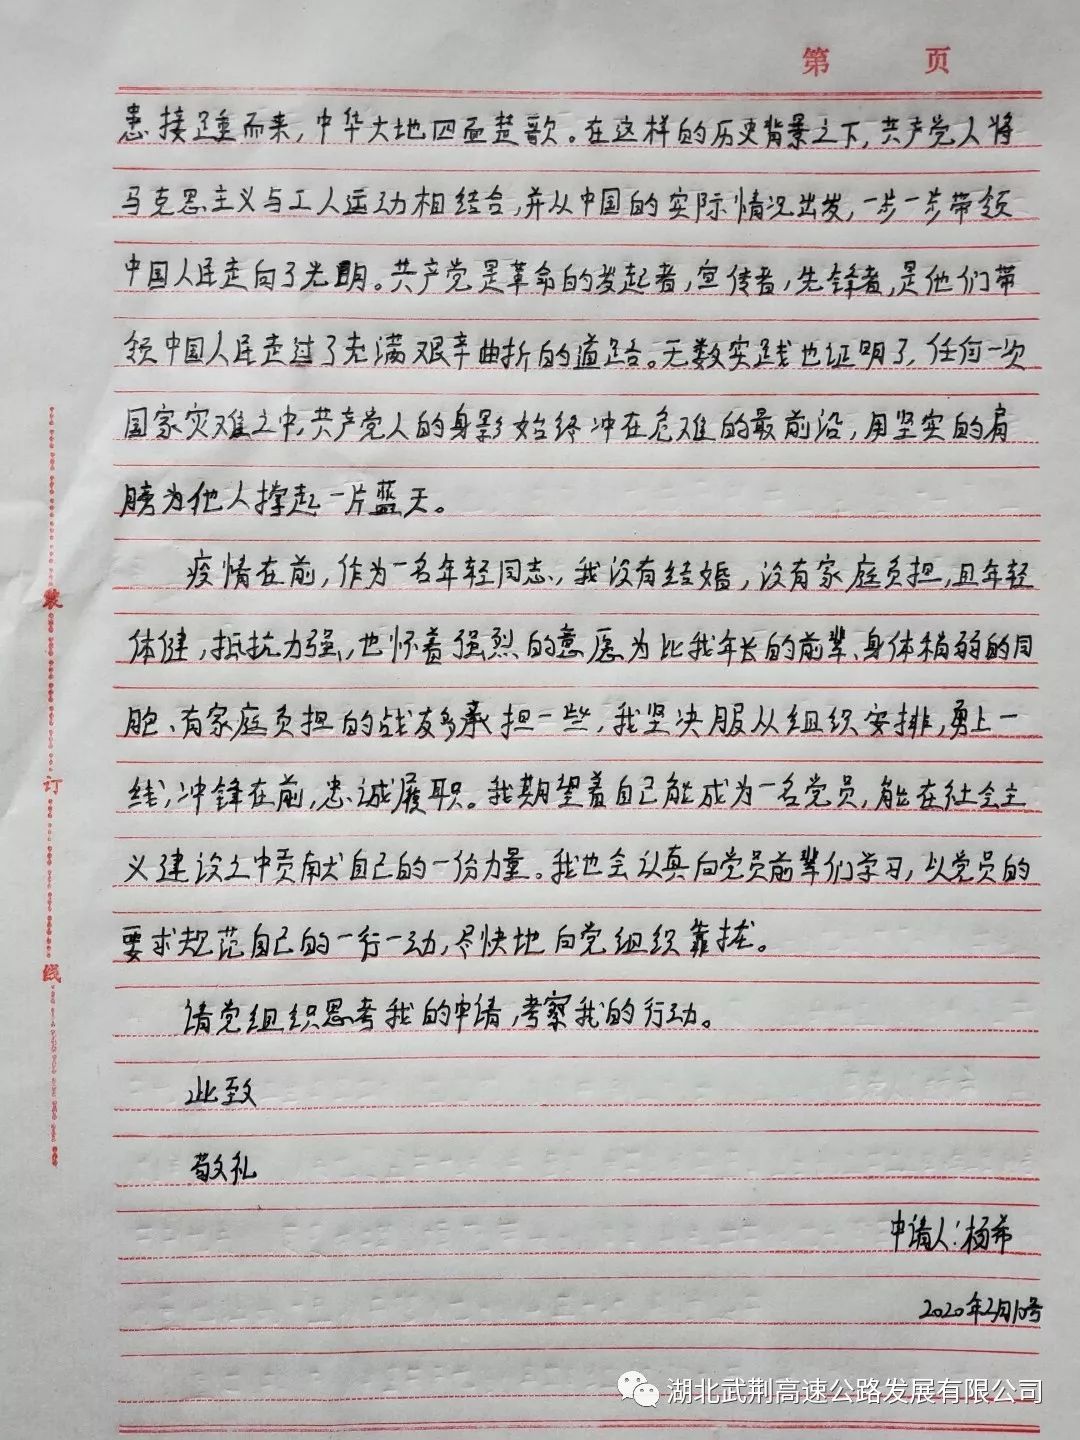 第 页
患接踵而来，中华大地四面楚歌。在这样的历史背景之下，共产党人将
马克思主义与工人运动相结合，并从中国的实际情况出发，一步一步带领
中国人民走向了光明。共产党是革命的发起者，宣传者，先锋者，是他们带
领中国人民走过了充满艰辛曲折的道路。无数实践也证明了，任何一次
国家灾难之中，共产党人的身影始终冲在危难的最前沿，用坚实的肩
膀为他人撑起一片蓝天。
疫情在前，作为一名年轻同志，我没有结婚，没有家庭负担，且年轻
体健，抵抗力强，也怀着强烈的意愿为比我年长的前辈、身体稍弱的同
胞、有家庭负担的战友多承担一些，我坚决服从组织安排，勇上一
线，冲锋在前，忠诚履职。我期望着自己能成为一名党员，能在社会主
义建设工中贡献自己的一份力量。我也会认真向党员前辈们学习，以党员的
要求规范自己的一行一动，尽快地向党组织靠拢。
请党组织思考我的申请，考察我的行动。
此致
敬礼
申请人：杨希
2020年2月10号
装订线
湖北武荆高速公路发展有限公司